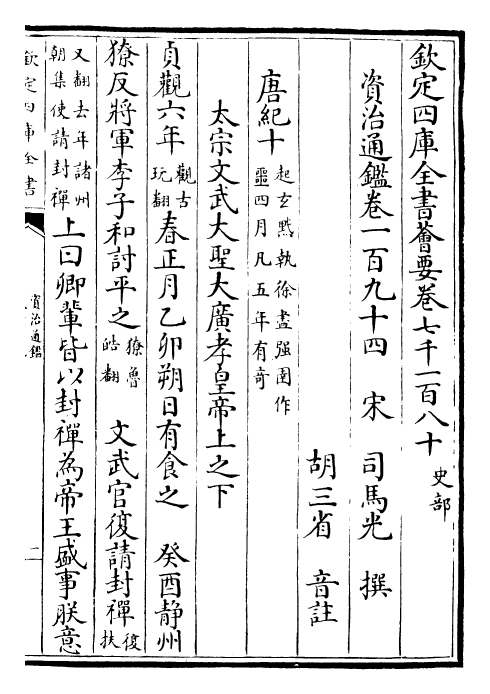 欽定四庫全書薈要卷七千一百八十 史部
資治通鑑卷一百九十四 宋 司馬光 撰
胡三省 音註
唐紀十 起玄黓執徐盡强圉作
噩四月凡五年有奇
太宗文武大聖大廣孝皇帝上之下
貞觀六年 觀古
玩翻 春正月乙卯朔日有食之 癸酉静州
獠反將軍李子和討平之 獠魯
皓翻 文武官復請封禪 復
扶
又翻去年諸州
朝集使請封禪 上曰卿輩皆以封禪為帝王盛事朕意
欽定四庫全書
資治通鑑
二